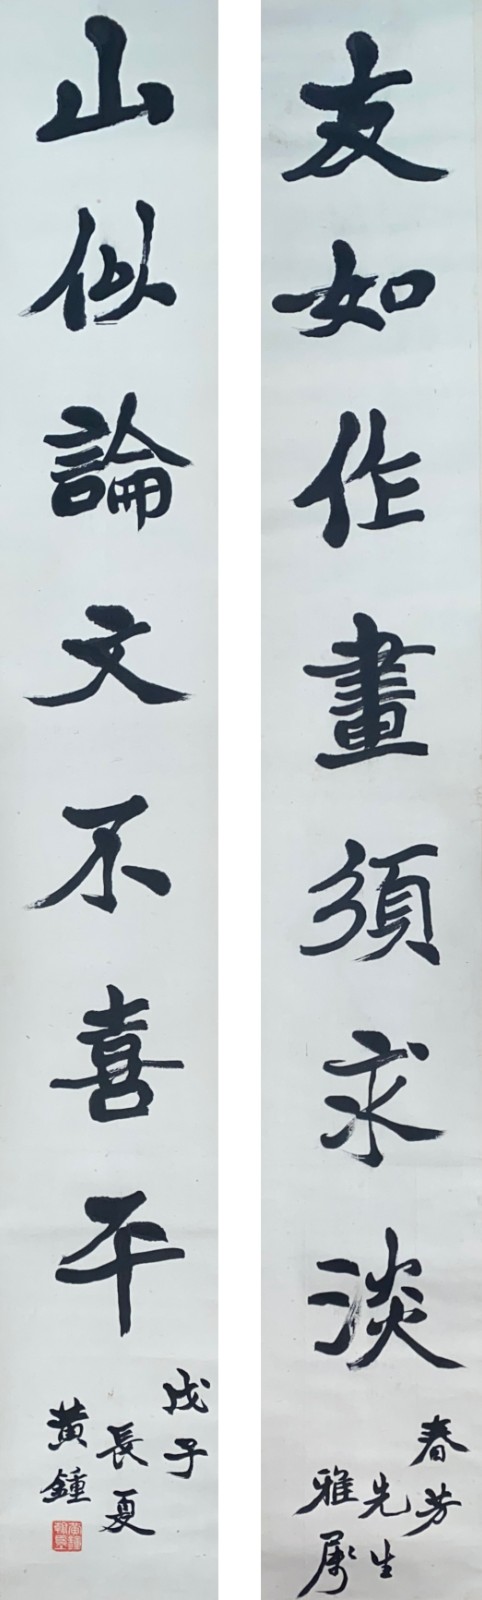 友如作畫須求淡
春芳
先生
雅屬
山似論文不喜平
戊子
長夏
黃鍾